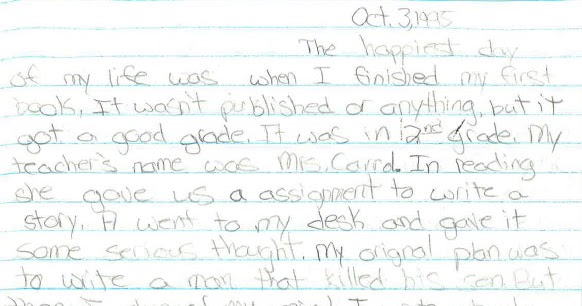 Oct. 3, 1995
The happiest day
of my life was when I finished my first
book. It wasn't published or anything, but it
got a good grade. It was in 2nd grade. My
teacher's name was Mrs. Carrol. In reading
she gave us a assignment to write a
story. I went to my desk and gave it
some serious thought. My orignal plan was
to write a man that killed his son. But
then I